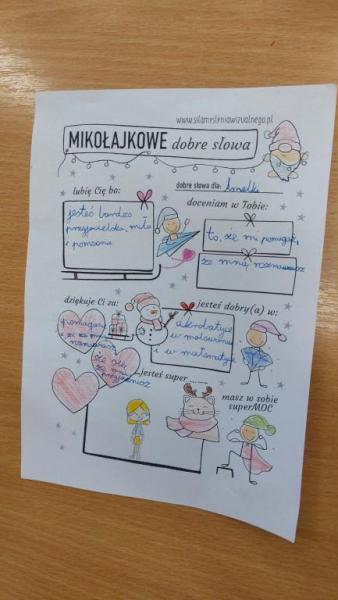 www.silamysleniawizualnego.pl
MIKOŁAJKOWE dobre słowa
dobre słowa dla: Anelki
lubię Cię bo:
jesteś bardzo
przyjacielska, miła
i pomocna
doceniam w Tobie:
to, że mi pomagasz
ze mną rozmawiasz
dziękuje Ci za:
pomaganie
i że ze mną
rozmawiasz
że się
przyjaźnisz
jesteś dobry(a) w:
akrobatyce
w malowaniu
i w matematyce
jesteś super ......
masz w sobie
superMOC